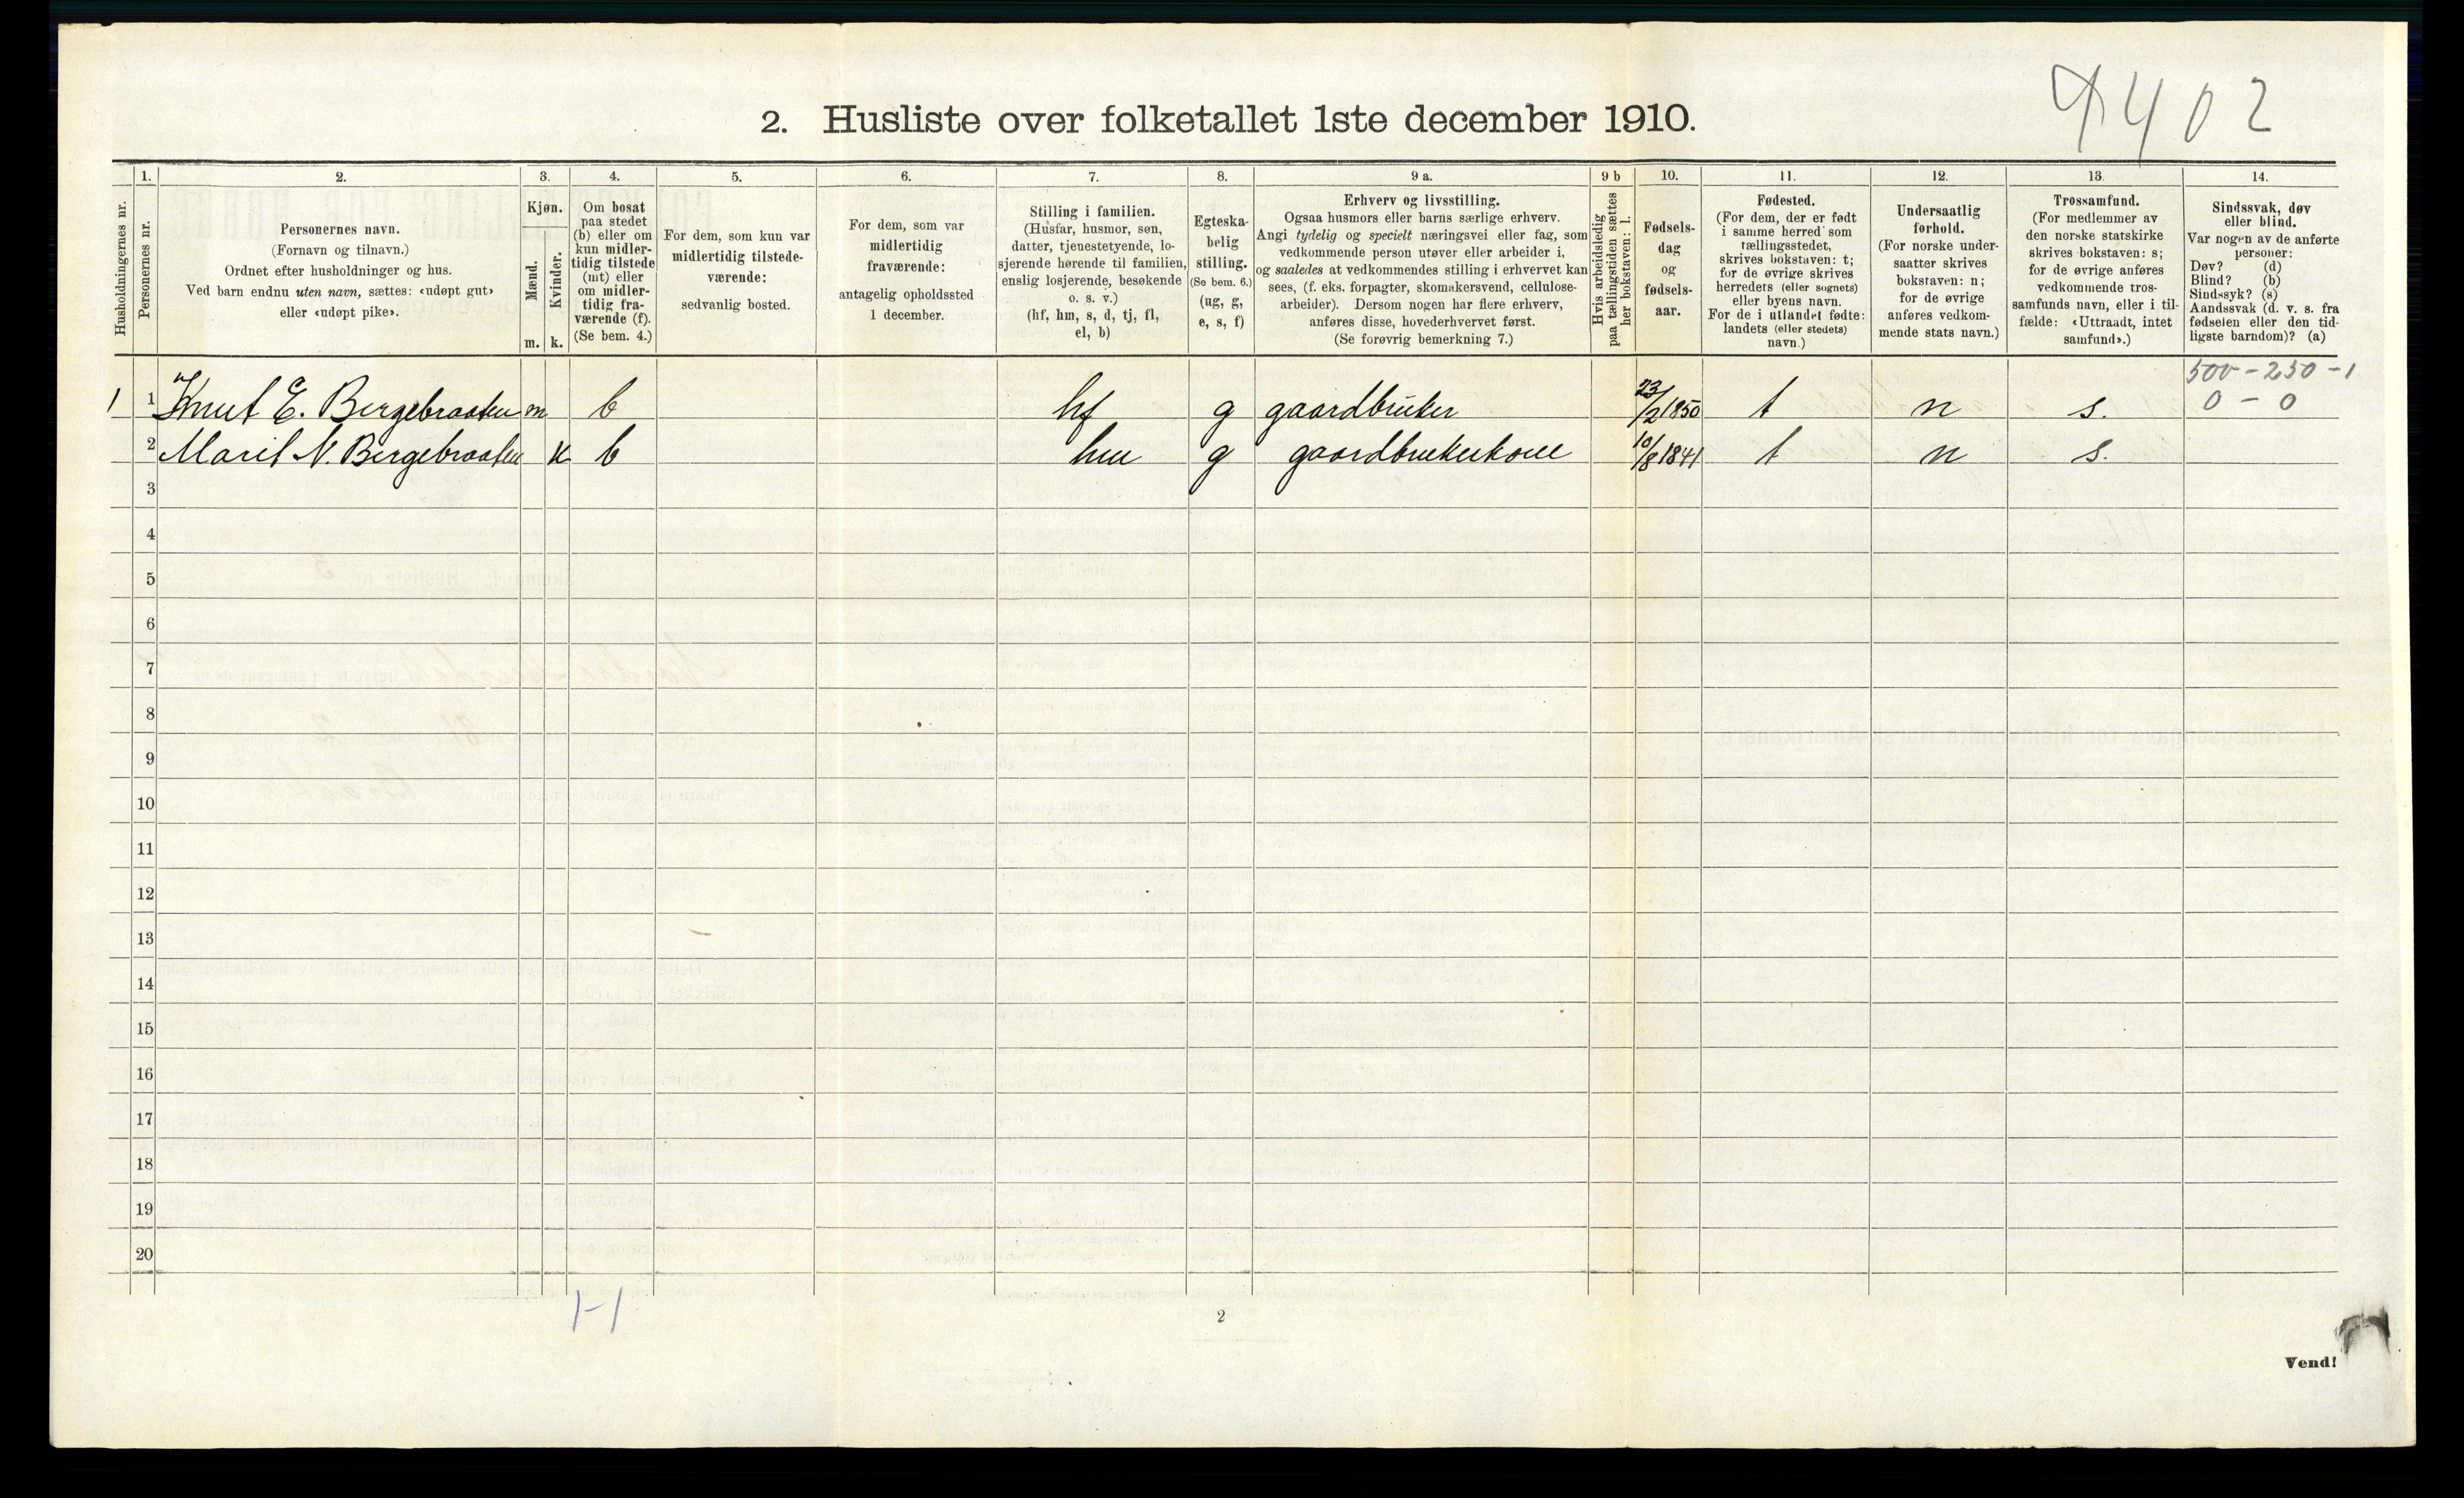 4402
2. Husliste over folketallet 1ste december 1910.
1. 2. 3. 4. 5. 6. 7. 8. 9 a. 9 b 10. 11. 12. 13. 14.
Husholdningernes nr.
Personernes nr.
Personernes navn.
(Fornavn og tilnavn.)
Ordnet efter husholdninger og hus.
Ved barn endnu uten navn, sættes: «udøpt gut»
eller «udøpt pike».
Kjøn.
Mænd.
Kvinder.
m. k.
Om bosat
paa stedet
(b) eller om
kun midler-
tidig tilstede
(mt) eller
om midler-
tidig fra-
værende (f).
(Se bem. 4.)
For dem, som kun var
midlertidig tilstede-
værende:
sedvanlig bosted.
For dem, som var
midlertidig
fraværende:
antagelig opholdssted
1 december.
Stilling i familien.
(Husfar, husmor, søn,
datter, tjenestetyende, lo-
sjerende hørende til familien,
enslig losjerende, besøkende
o. s. v.)
(hf, hm, s, d, tj, fl,
el, b)
Egteska-
belig
stilling.
(Se bem. 6.)
(ug, g,
e, s, f)
Erhverv og livsstilling.
Ogsaa husmors eller barns særlige erhverv.
Angi tydelig og specielt næringsvei eller fag, som
vedkommende person utøver eller arbeider i,
og saaledes at vedkommendes stilling i erhvervet kan
sees, (f. eks. forpagter, skomakersvend, cellulose-
arbeider). Dersom nogen har flere erhverv,
anføres disse, hovederhvervet først.
(Se forøvrig bemerkning 7.)
Hvis arbeidsledig
paa tællingstiden sættes
her bokstaven: l.
Fødsels-
dag
og
fødsels-
aar.
Fødested.
(For dem, der er født
i samme herred som
tællingsstedet,
skrives bokstaven: t;
for de øvrige skrives
herredets (eller sognets)
eller byens navn.
For de i utlandet fødte:
landets (eller stedets)
navn.)
Undersaatlig
forhold.
(For norske under-
saatter skrives
bokstaven: n;
for de øvrige
anføres vedkom-
mende stats navn.)
Trossamfund.
(For medlemmer av
den norske statskirke
skrives bokstaven: s;
for de øvrige anføres
vedkommende tros-
samfunds navn, eller i til-
fælde: «Uttraadt, intet
samfund».)
Sindssvak, døv
eller blind.
Var nogen av de anførte
personer:
Døv? (d)
Blind? (b)
Sindssyk? (s)
Aandssvak (d. v. s. fra
fødselen eller den tid-
ligste barndom)? (a)
500 - 250 - 1
0 - 0
1 1 Knut E. Bergebraaten m b hf g gaardbruker 23/2 1850 t n s.
2 Marit N. Bergebraaten k b hm g gaardbrukerkone 10/8 1841 t n s.
3
4
5
6
7
8
9
10
11
12
13
14
15
16
17
18
19
20
1-1
2
Vend!